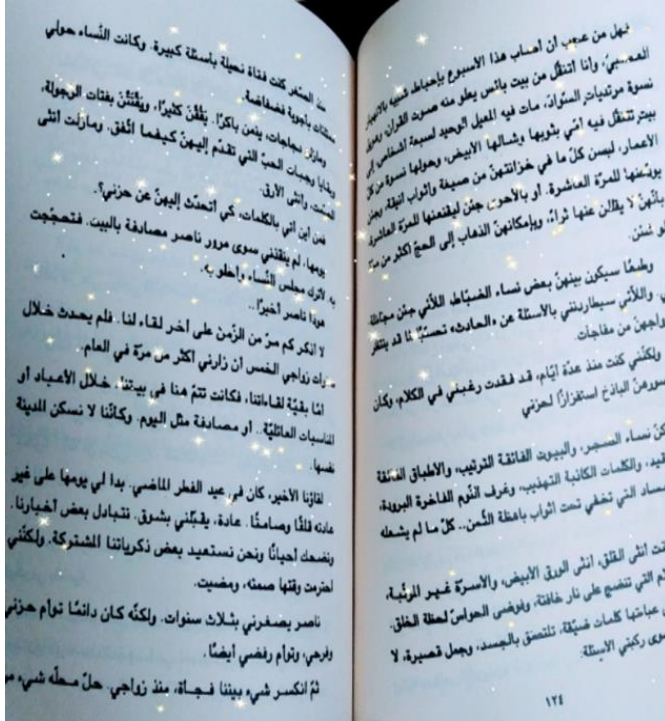 فهل من عجب أن أصاب هذا الأسبوع بإحباط، شبيه بالانهيار
العصبيّ، وأنا أتنقّل من بيت بائس يعلو منه صوت القرآن، وعويل
نسوة مرتديات السّواد، مات فيه المعيل الوحيد لسبعة أشخاص إلى
بيت تتنقّل فيه أمّي بثوبها وشالها الأبيض، وحولها نسوة من كلّ
الأعمار، لبسن كلّ ما في خزانتهنّ من صيغة وأثواب أنيقة، وجئن
يودّعنها للمرّة العاشرة. أو بالأحرى جئن ليقنعنها للمرّة العاشرة
بأنّهنّ لا يقللن عنها ثراءً، وبإمكانهنّ الذهاب إلى الحجّ أكثر من مرّة
لو شئن.
وطبعًا سيكون بينهنّ بعض نساء الضبّاط، اللاّئي جئن مجاملة،
واللاّئي سيطاردنني بالأسئلة عن «الحادث» تحسّبًا لما قد ينتظر
أزواجهنّ من مفاجآت.
ولكنّني كنت منذ عدّة أيّام، قد فقدت رغبتي في الكلام، وكأن
البذخ استفزازًا لحزني
نساء الضجر، والبيوت الفائقة الترتيب، والأطباق الفائقة
والكلمات الكاذبة التهذيب، وغرف النّوم الفاخرة البرودة،
التي تخفي تحت أثواب باهظة الثّمن.. كلّ ما لم يشعله
كنت أنثى القلق، أنثى الورق الأبيض، والأسرّة غير المرتّبة،
التي تنضج على نار خافتة، وفوضى الحواسّ لحظة الخلق.
عباءتها كلمات ضيّقة، تلتصق بالجسد، وجمل قصيرة، لا
سوى ركبتي الأسئلة.
١٢٤
منذ الصّغر كنت فتاة نحيلة بأسئلة كبيرة. وكانت النّساء حولي
ممتلئات بأجوبة فضفاضة.
ومازلن دجاجات، ينمن باكرًا. يققن كثيرًا، ويقتتن بفتات الرجولة،
وبقايا وجبات الحبّ التي تقدّم إليهنّ كيفما اتّفق. ومازلت أنثى
الصّمت، وأنثى الأرق.
فمن أين آتي بالكلمات، كي أتحدّث إليهنّ عن حزني؟.
يومها، لم ينقذني سوى مرور ناصر مصادفة بالبيت. فتحجّجت
به لأترك مجلس النّساء وأخلو به.
هوذا ناصر أخيرًا..
لا أذكر كم مرّ من الزّمن على آخر لقاء لنا. فلم يحدث خلال
سنوات زواجي الخمس أن زارني أكثر من مرّة في العام.
أمّا بقيّة لقاءاتنا، فكانت تتمّ هنا في بيتنا، خلال الأعياد أو
المناسبات العائليّة.. أو مصادفة مثل اليوم. وكأنّنا لا نسكن المدينة
نفسها.
لقاؤنا الأخير، كان في عيد الفطر الماضي. بدا لي يومها على غير
عادته قلقًا وصامتًا. عادة، يقبّلني بشوق. نتبادل بعض أخبارنا.
ونضحك أحيانًا ونحن نستعيد بعض ذكرياتنا المشتركة. ولكنّني
احترمت وقتها صمته، ومضيت.
ناصر يصغرني بثلاث سنوات. ولكنّه كان دائمًا توأم حزني
وفرحي، وتوأم رفضي أيضًا.
ثمّ انكسر شيء بيننا فجأة، منذ زواجي. حلّ محلّه شيء من